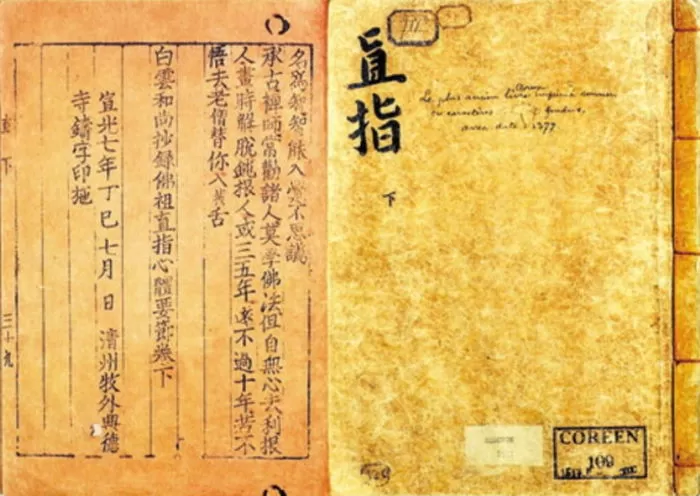 不思議
承古禪師常勸諸人莫學佛法但自無心去利根
人晝時解脫鈍根人或三五年遠不過十年若不
悟去老僧替你入拔舌
白雲和尚抄錄佛祖直指心體要節卷下
宣光七年丁巳七月 日 清州牧外興德
寺鑄字印施
下
三十九
直指
下
Le plus ancien livre imprimé connu
en caractères fondus,
avec date = 1377
COREEN
109